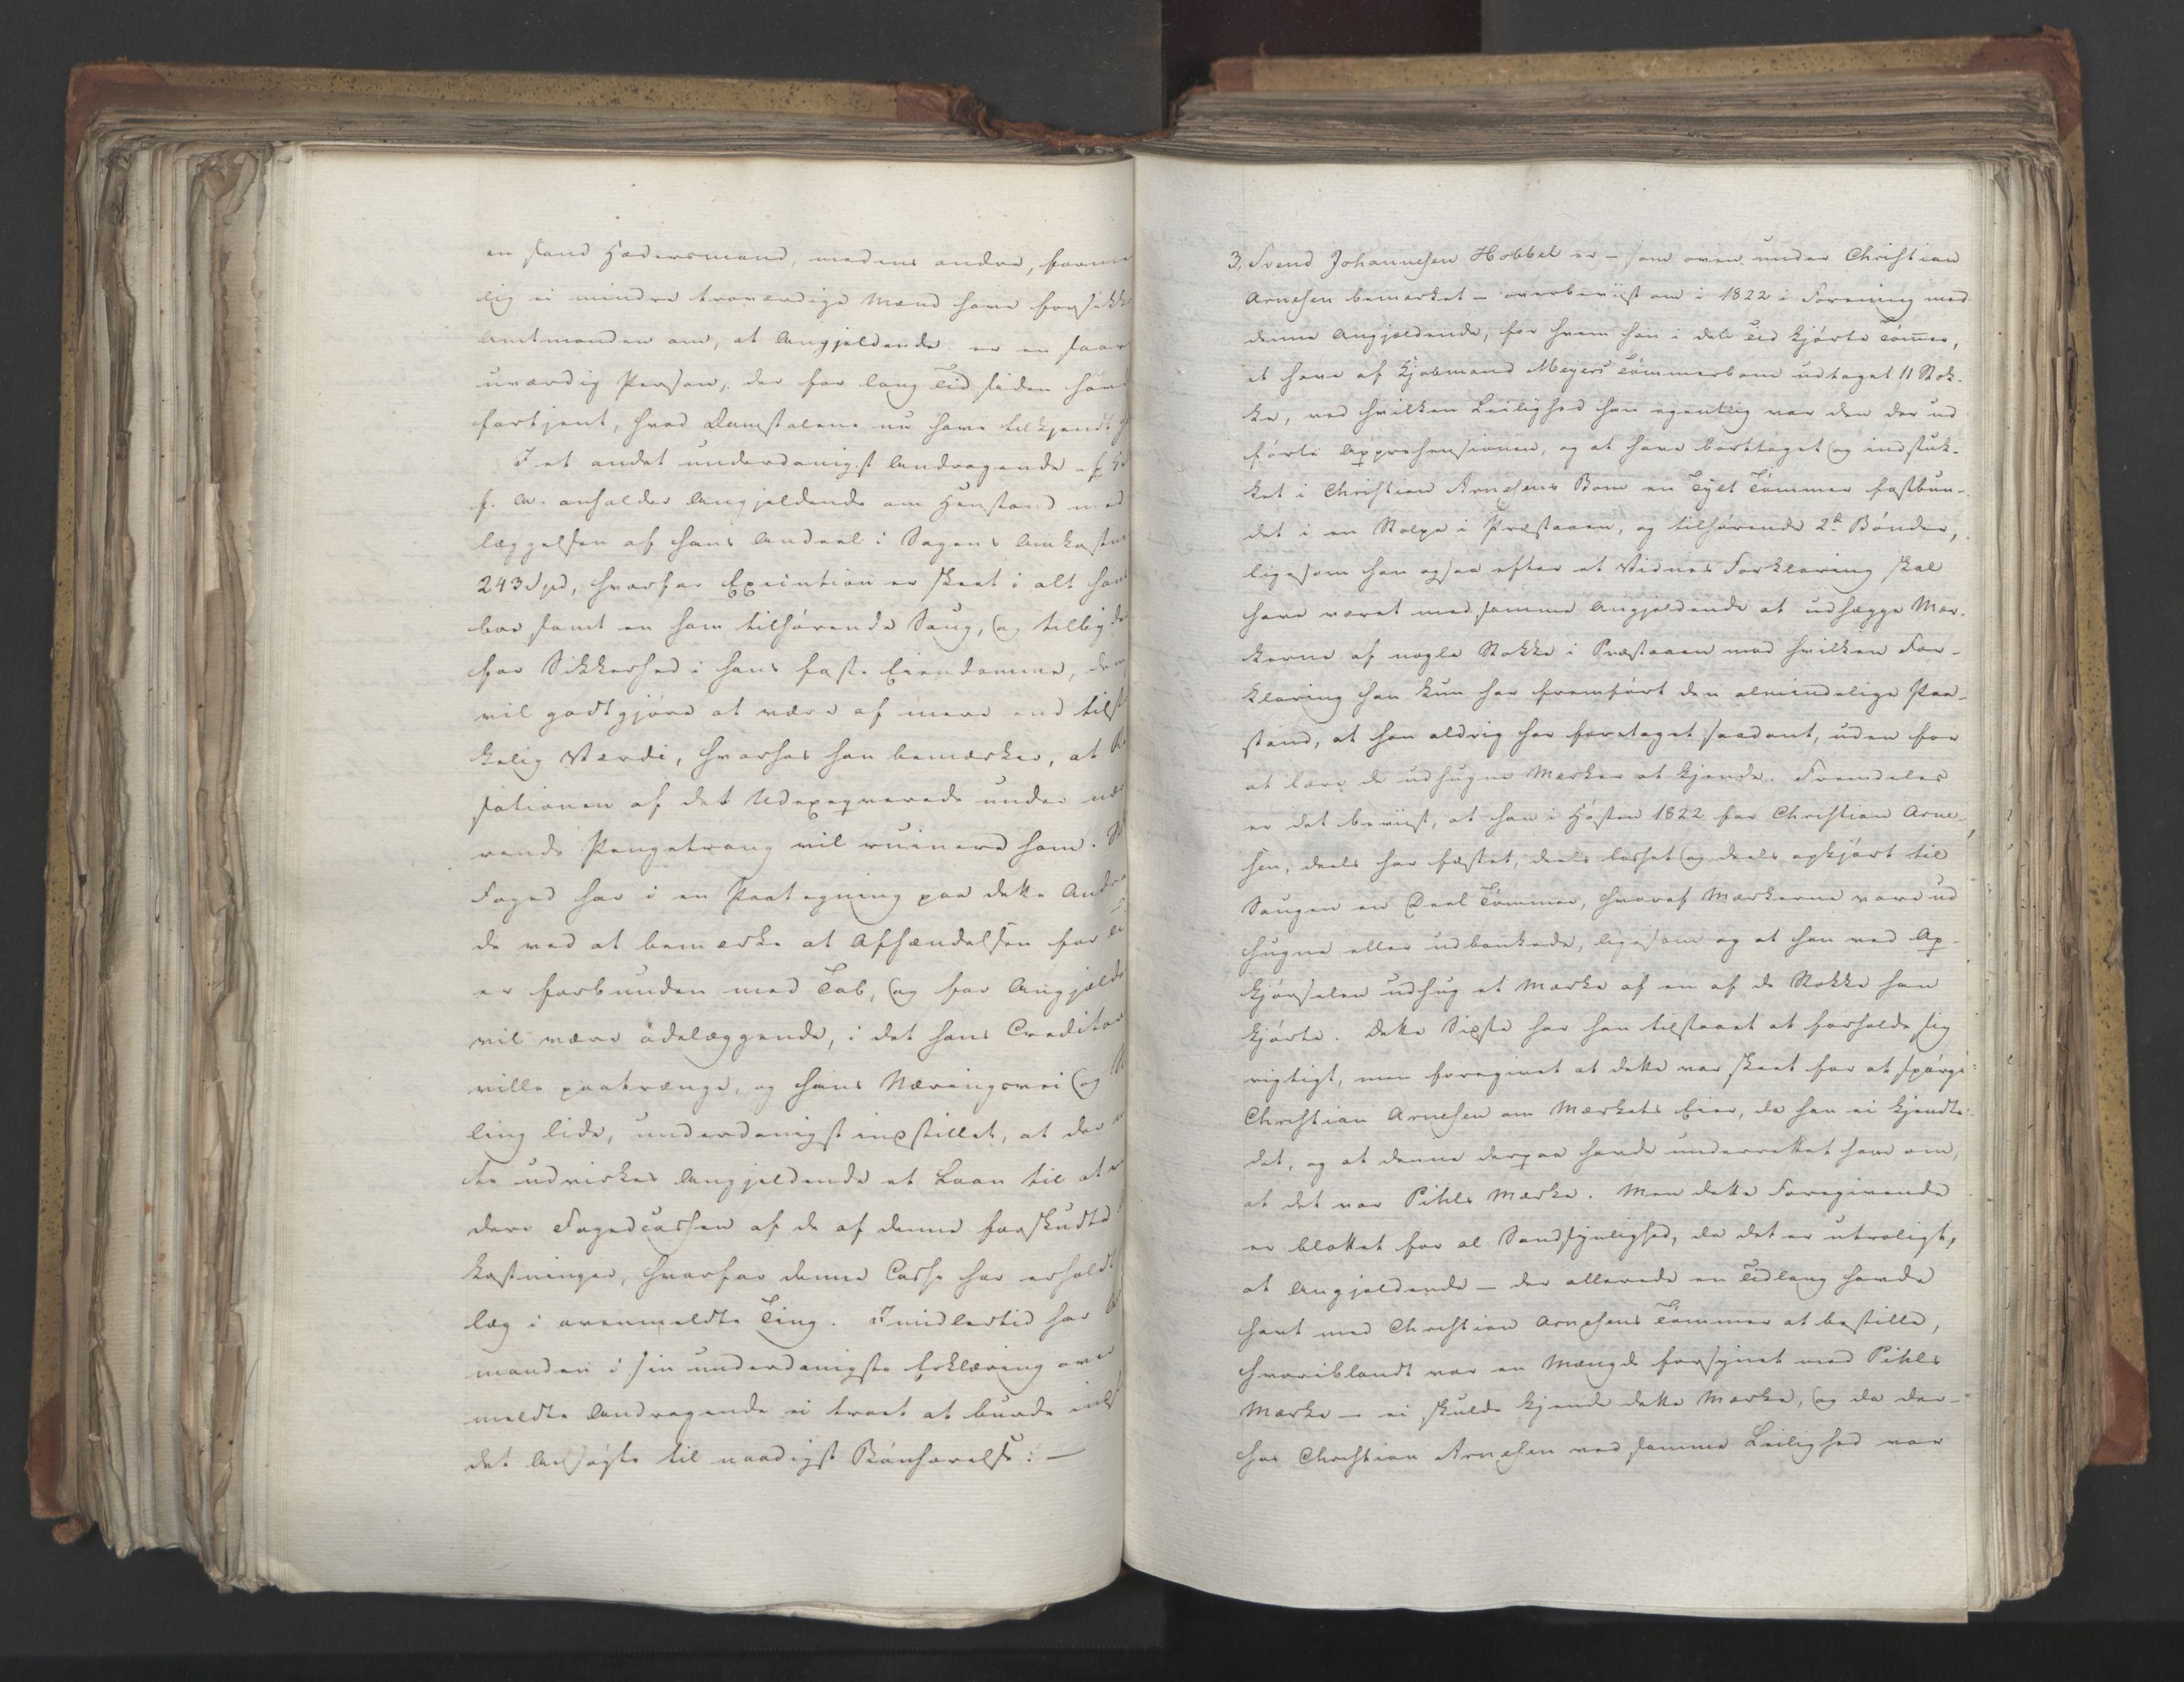 en sand Hædersmand, medens andre, form
lig ei mindre troværdige Mænd have forsikk
Amtmanden om, at Angjeldende er en saar
uværdig Person, der for lang Tid siden hav
fortjent, hvad Domstolene nu have tilkjendt
I et andet underdanigst Andragende af
f. A. anholder Angjeldende om Henstand med
læggelsen af hans Andeel i Sagens Omkostn
243 Spd, hvorfor Execution er skeet i alt han
boe samt en ham tilhørende Saug, og tilbyde
for Sikkerhed i hans faste Eiendomme, der
vil godtgjøre at være af mere end tilst
kelig Værdi, hvorhos han bemærker, at
sationen af det Udexeqverede under nær
rende Pengetrang vil ruinere ham.
Foged har i en Paategning paa dette Andra
de ved at bemærke at Afhændelsen for
er forbunden med Tab, og for Angjelde
vil være ødelæggende, i det hans Creditor
ville paatrænge, og hans Næringsvei og
ling lide, underdanigst indstillet, at der
te udvirkes Angjeldende et Laan til at
dere Fogedcassen af de af denne forskudte
kostninger, hvorfor denne Casse har erholdt
læg i ovenmeldte Ting. Imidlertid har
manden i sin underdanigste Erklæring over
meldte Andragende ei troet at burde
det Ansøgte til naadigst Bønhørelse: —
3, Svend Johannesen Hobbel er – som oven under Christian
Arnesen bemærket – overbeviist om i 1822 i Forening med
denne Angjældende, for hvem han i dele Tid kjørte Tømmer,
at have af Kjøbmand Meyers Tømmerbom udtaget 11 Stok-
ke, ved hvilken Leilighed han egentlig var den der ud
førte Apprehensionen, og at have borttaget og indstuk-
ket i Christian Arnesens Bom en Tylt Tømmer fastbun-
det i en Stolpe i Præstaaen, og tilhørende 2de Bønder,
ligesom han ogsaa efter et Vidnes Forklaring skal
have været med samme Angjeldende at udhugge Mær-
kerne af nogle Stokke i Præstaaen mod hvilken For-
klaring han kun har fremført den almindelige Paa-
stand, at han aldrig har foretaget saadant, uden for
at lære de udhugne Mærker at kjende. Fremdeles
er det beviist, at han i Høsten 1822 for Christian Arne-
sen, deels har fæstet, deels losset og deels opkjørt til
Saugen en Deel Tømmer, hvoraf Mærkerne vare ud
hugne eller udbankede, ligesom og at han ved Op-
kjørselen udhug et Mærke af en af de Stokke han
kjørte. Dette Sidste har han tilstaaet at forholde sig
rigtigt, men foregivet at dette var skeet for at spørge
Christian Arnesen om Mærkets Eier, da han ei kjendte
det, og at denne derpaa havde underrettet ham om,
at det var Pihls Mærke. Men dette Foregivende
er blottet for al Sandsynlighed, da det er utroligt,
at Angjeldende – der allerede en Tidlang havde
havt med Christian Arnesens Tømmer at bestille,
hvoriblandt var en Mængde forsynet med Pihls
Mærke – ei skulde kjende dette Mærke, og da der-
hos Christian Arnesen ved samme Leilighed var